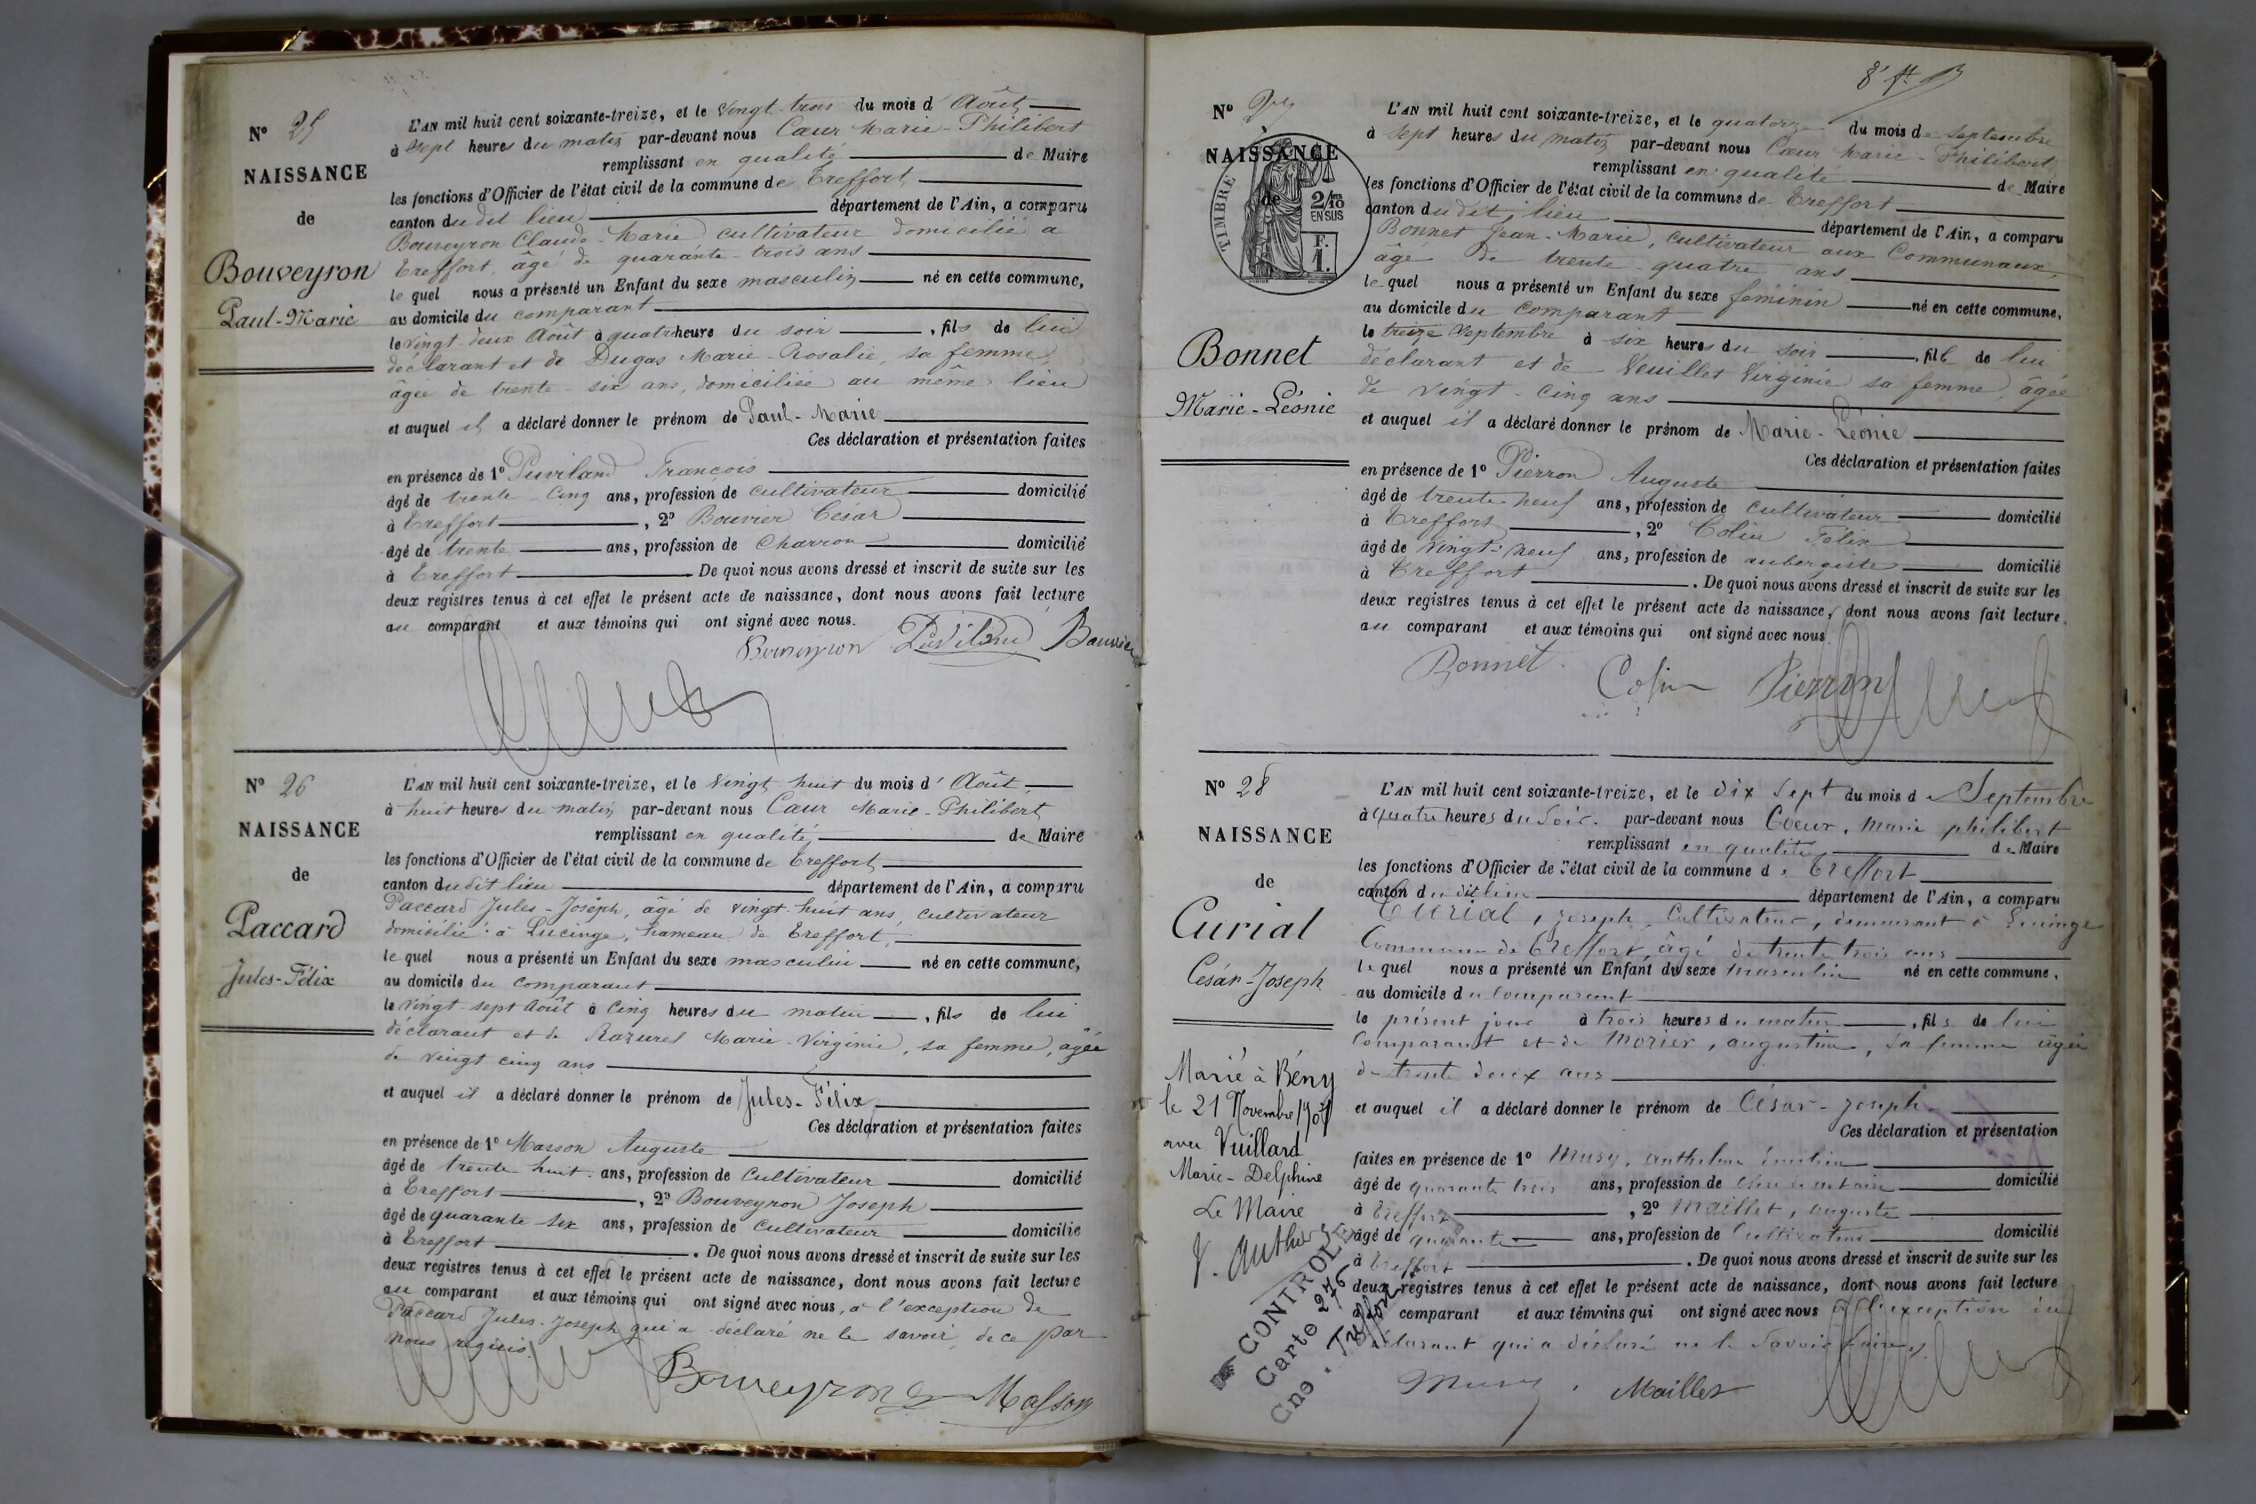 N° 25
NAISSANCE
de
Bouveyron
Paul-Marie
L'AN mil huit cent soixante-treize, et le vingt-trois du mois d'Août
à sept heures du matin par-devant nous Cœur Marie-Philibert
remplissant en qualité de Maire
les fonctions d'Officier de l'état civil de la commune de Treffort
canton dudit lieu département de l'Ain, a comparu
Bouveyron Claude-Marie cultivateur domicilié à
Treffort, âgé de quarante-trois ans
le quel nous a présenté un Enfant du sexe masculin né en cette commune,
au domicile du comparant
le vingt-deux Août à quatre heure du soir, fils de lui
déclarant et de Dugas Marie-Rosalie sa femme,
âgée de trente-six ans, domiciliée au même lieu
et auquel il a déclaré donner le prénom de Paul-Marie
Ces déclaration et présentation faites
en présence de 1° Puviland François
âgé de trente-cinq ans, profession de cultivateur domicilié
à Treffort, 2° Bouvier César
âgé de trente ans, profession de Charron domicilié
à Treffort De quoi nous avons dressé et inscrit de suite sur les
deux registres tenus à cet effet le présent acte de naissance, dont nous avons fait lecture
au comparant et aux témoins qui ont signé avec nous.
Bouveyron Puviland Bouvier
N° 26
NAISSANCE
de
Paccard
Jules-Félix
L'AN mil huit cent soixante-treize, et le vingt huit du mois d'Août
à huit heures du matin par-devant nous Cœur Marie-Philibert
remplissant en qualité de Maire
les fonctions d'Officier de l'état civil de la commune de Treffort
canton dudit lieu département de l'Ain, a comparu
Paccard Jules-Joseph, âgé de vingt-huit ans, cultivateur
domicilié à Lucinge, hameau de Treffort,
le quel nous a présenté un Enfant du sexe masculin né en cette commune,
au domicile du comparant
le vingt-sept Août à cinq heures du matin, fils de lui
déclarant et de Razurel Marie-Virginie, sa femme, âgée
de vingt cinq ans
et auquel il a déclaré donner le prénom de Jules-Félix
Ces déclaration et présentation faites
en présence de 1° Masson Auguste
âgé de trente huit ans, profession de cultivateur domicilié
à Treffort, 2° Bouveyron Joseph
âgé de quarante six ans, profession de cultivateur domicilié
à Treffort. De quoi nous avons dressé et inscrit de suite sur les
deux registres tenus à cet effet le présent acte de naissance, dont nous avons fait lecture
au comparant et aux témoins qui ont signé avec nous, à l'exception de
Paccard Jules-Joseph qui a déclaré ne le savoir, de ce par
nous requis.
Bouveyron Masson
N°
NAISSANCE
de
TIMBRE
2/10
EN SUS
F.
1.
Bonnet
Marie-Léonie
L'AN mil huit cent soixante-treize, et le quatorze du mois de Septembre
à sept heures du matin par-devant nous Cœur Marie-Philibert
remplissant en qualité de Maire
les fonctions d'Officier de l'état civil de la commune de Treffort
canton dudit lieu département de l'Ain, a comparu
Bonnet Jean-Marie, cultivateur aux Communaux,
âgé de trente-quatre ans
le quel nous a présenté un Enfant du sexe féminin né en cette commune,
au domicile du comparant
le treize Septembre à six heures du soir, fille de lui
déclarant et de Veuillet Virginie sa femme, âgée
de vingt-cinq ans
et auquel il a déclaré donner le prénom de Marie-Léonie
Ces déclaration et présentation faites
en présence de 1° Pierron Auguste
âgé de trente-neuf ans, profession de cultivateur domicilié
à Treffort, 2° Colin Félix
âgé de vingt-neuf ans, profession de aubergiste domicilié
à Treffort. De quoi nous avons dressé et inscrit de suite sur les
deux registres tenus à cet effet le présent acte de naissance, dont nous avons fait lecture
au comparant et aux témoins qui ont signé avec nous.
Bonnet Colin Pierron
N° 28
NAISSANCE
de
Curial
César-Joseph
Marié à Bény
le 21 Novembre
avec Vuillard
Marie-Delphine
Le Maire
CONTROLE
Carte 276
Cne. Treffort
L'AN mil huit cent soixante-treize, et le dix sept du mois de Septembre
à quatre heures du soir. par-devant nous Coeur, marie philibert
remplissant en qualité de Maire
les fonctions d'Officier de l'état civil de la commune de Treffort
canton du dit lieu département de l'Ain, a comparu
Curial, joseph, Cultivateur, demeurant à Lucinge
Commune de Treffort, âgé de trente trois ans
le quel nous a présenté un Enfant du sexe masculin né en cette commune,
au domicile du comparant
le présent jour à trois heures du matin, fils de lui
comparant et de Morier, augustine, sa femme âgée
de trente deux ans
et auquel il a déclaré donner le prénom de César-joseph
Ces déclaration et présentation
faites en présence de 1° Musy, anthelme
âgé de quarante trois ans, profession de domicilié
à Treffort, 2° Maillet, auguste
âgé de quarante ans, profession de Cultivateur domicilié
à Treffort. De quoi nous avons dressé et inscrit de suite sur les
deux registres tenus à cet effet le présent acte de naissance, dont nous avons fait lecture
au comparant et aux témoins qui ont signé avec nous à l'exception du
déclarant qui a déclaré ne le savoir faire.
Musy Maillet